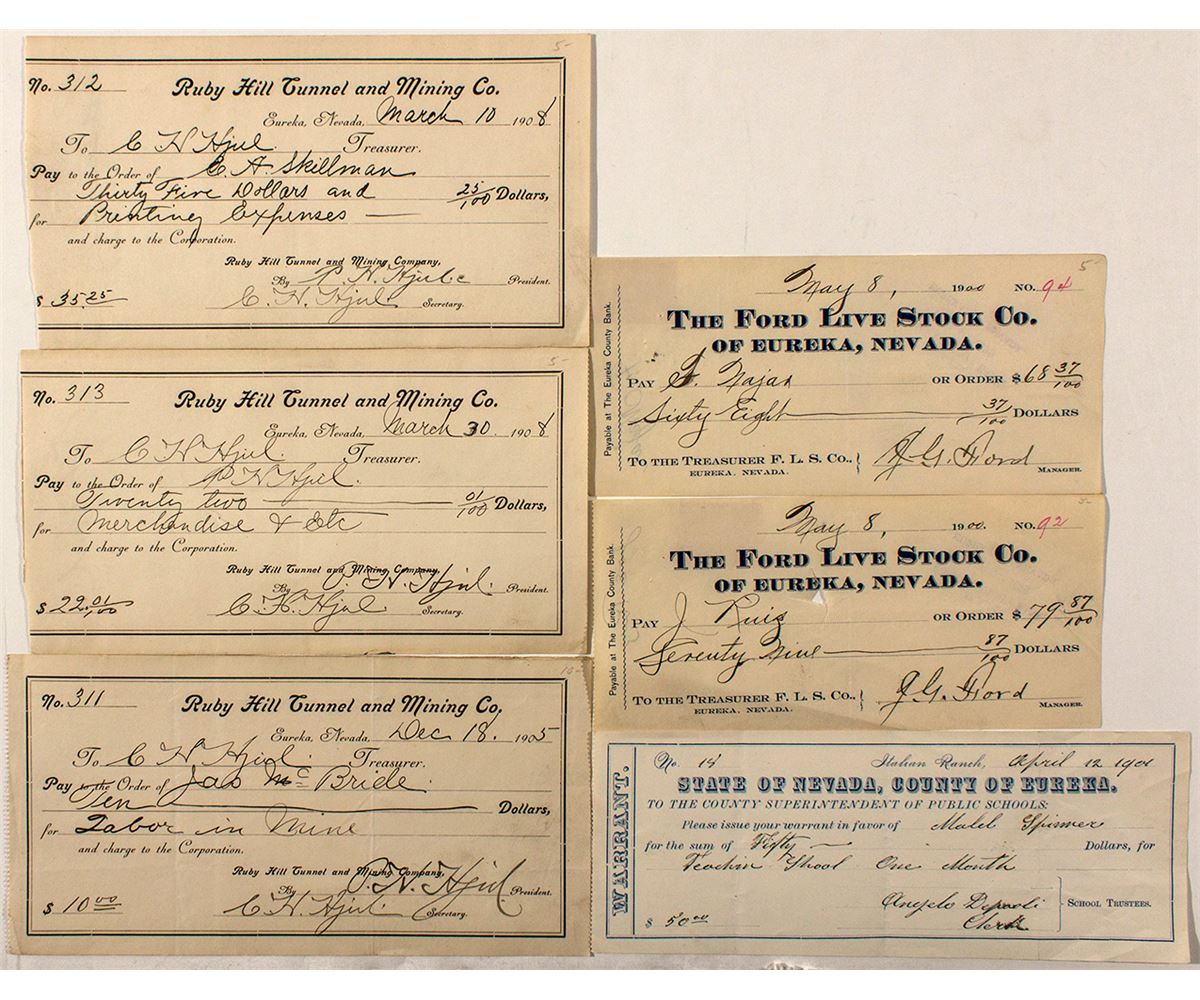 5-
No. 312
Ruby Hill Tunnel and Mining Co.
Eureka, Nevada, March 10 1908
To C H Hjul Treasurer.
Pay to the Order of C. A. Skillman
Thirty Five Dollars and 25/100 Dollars,
for Printing Expenses
and charge to the Corporation.
Ruby Hill Tunnel and Mining Company,
By P. H. Hjul President.
$ 35.25 C. H. Hjul Secretary.
5-
No. 313
Ruby Hill Tunnel and Mining Co.
Eureka, Nevada, March 30. 1908
To C H Hjul. Treasurer.
Pay to the Order of P. H Hjul.
Twenty two 01/100 Dollars,
for Merchandise & Etc
and charge to the Corporation.
Ruby Hill Tunnel and Mining Company,
By P. H. Hjul. President.
$ 22.01/100 C. H. Hjul Secretary.
10-
No. 311
Ruby Hill Tunnel and Mining Co,
Eureka, Nevada, Dec 18. 1905
To C H Hjul. Treasurer.
Pay to the Order of Jas Mc Bride.
Ten Dollars,
for Labor in Mine
and charge to the Corporation.
Ruby Hill Tunnel and Mining Company,
By P. H. Hjul President.
$ 10.00 C. H. Hjul. Secretary.
5-
Payable at The Eureka County Bank.
May 8, 1900 NO. 94
THE FORD LIVE STOCK CO.
OF EUREKA, NEVADA.
PAY Najar OR ORDER $68 37/100
Sixty Eight 37/100 DOLLARS
TO THE TREASURER F. L. S. CO.,
EUREKA, NEVADA.
J. G. Ford MANAGER.
5-
Payable at The Eureka County Bank.
May 8, 1900. NO. 92
THE FORD LIVE STOCK CO.
OF EUREKA, NEVADA.
PAY J Ruiz OR ORDER $ 79 87/100
Seventy Nine 87/100 DOLLARS
TO THE TREASURER F. L. S. CO.,
EUREKA, NEVADA.
J. G. Ford MANAGER.
WARRANT.
No. 18 Italian Ranch, April 12 1901
STATE OF NEVADA, COUNTY OF EUREKA.
TO THE COUNTY SUPERINTENDENT OF PUBLIC SCHOOLS:
Please issue your warrant in favor of Mabel Spinner
for the sum of Fifty Dollars, for
Teachin School One Month
Angelo Depaoli
Clerk
SCHOOL TRUSTEES.
$ 50 00